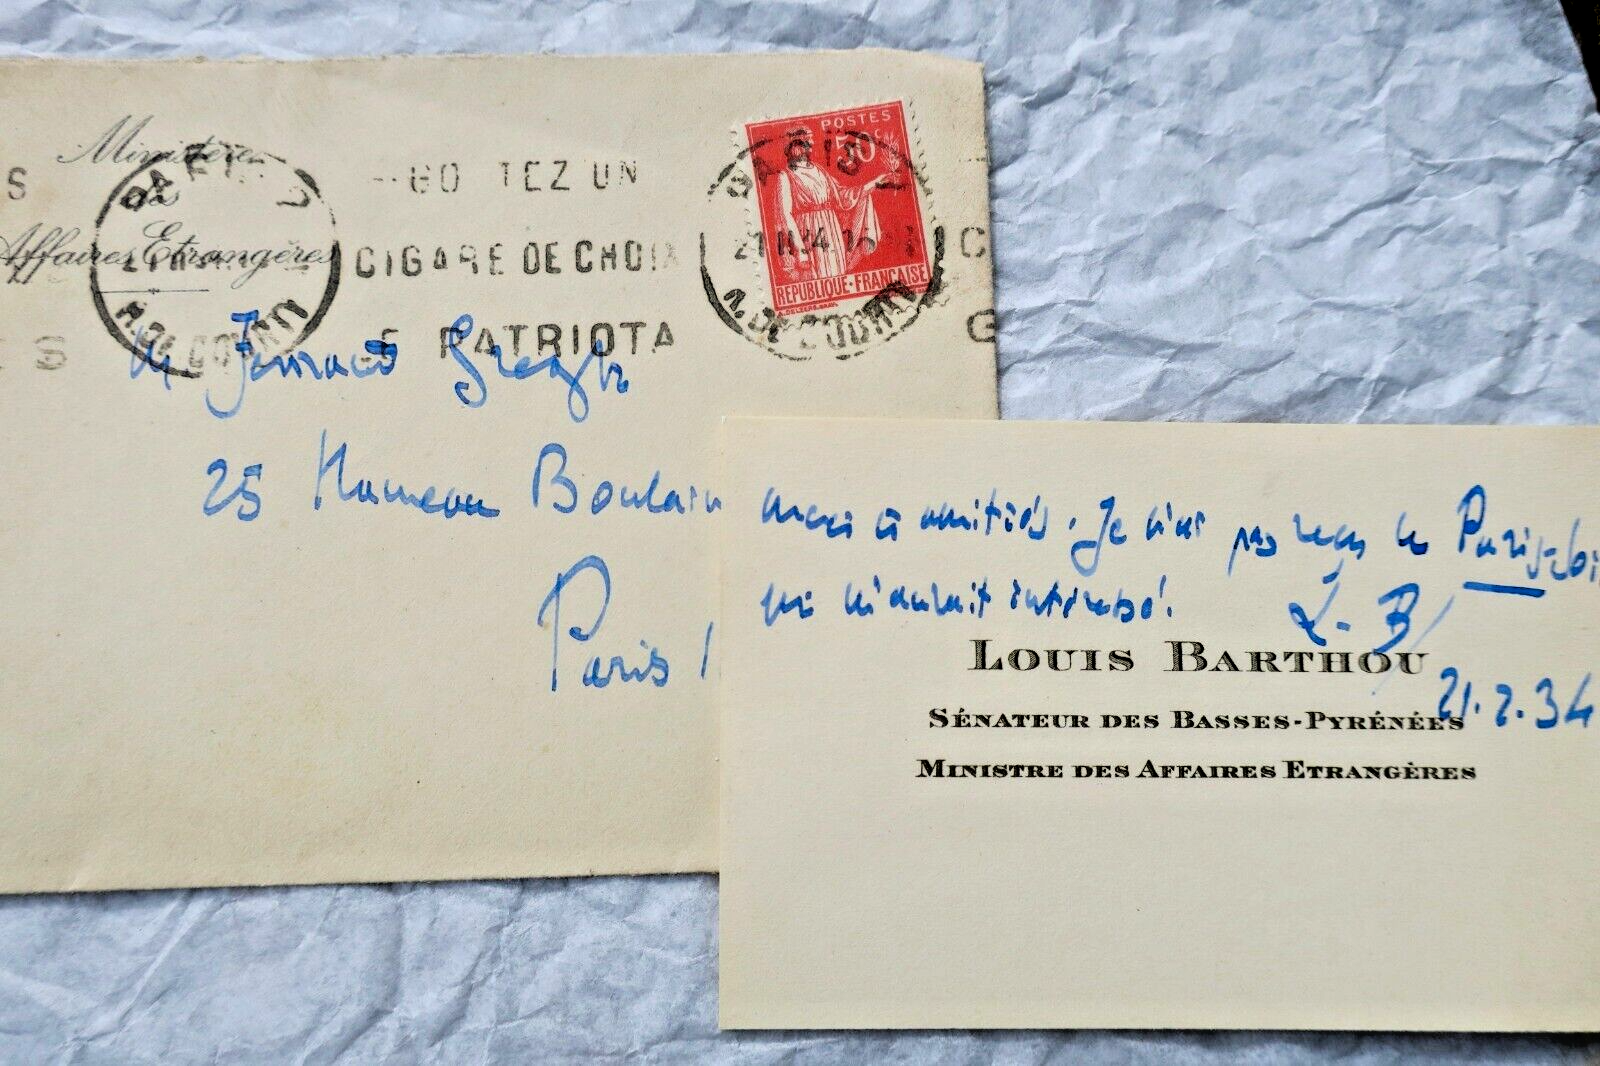 Ministère
des
Affaires Etrangères
PARIS
21 II 34
R. DE GOURNY
GOUTEZ UN
CIGARE DE CHOIX
LE PATRIOTA
POSTES
50c
REPUBLIQUE-FRANÇAISE
M Fernand Gregh
25 Hameau Boulain
Paris
merci & amitiés. Je n'ai pas reçu le Paris-Soir
qui m'aurait intéressé. L. B
LOUIS BARTHOU
21.2.34
SÉNATEUR DES BASSES-PYRÉNÉES
MINISTRE DES AFFAIRES ETRANGÈRES